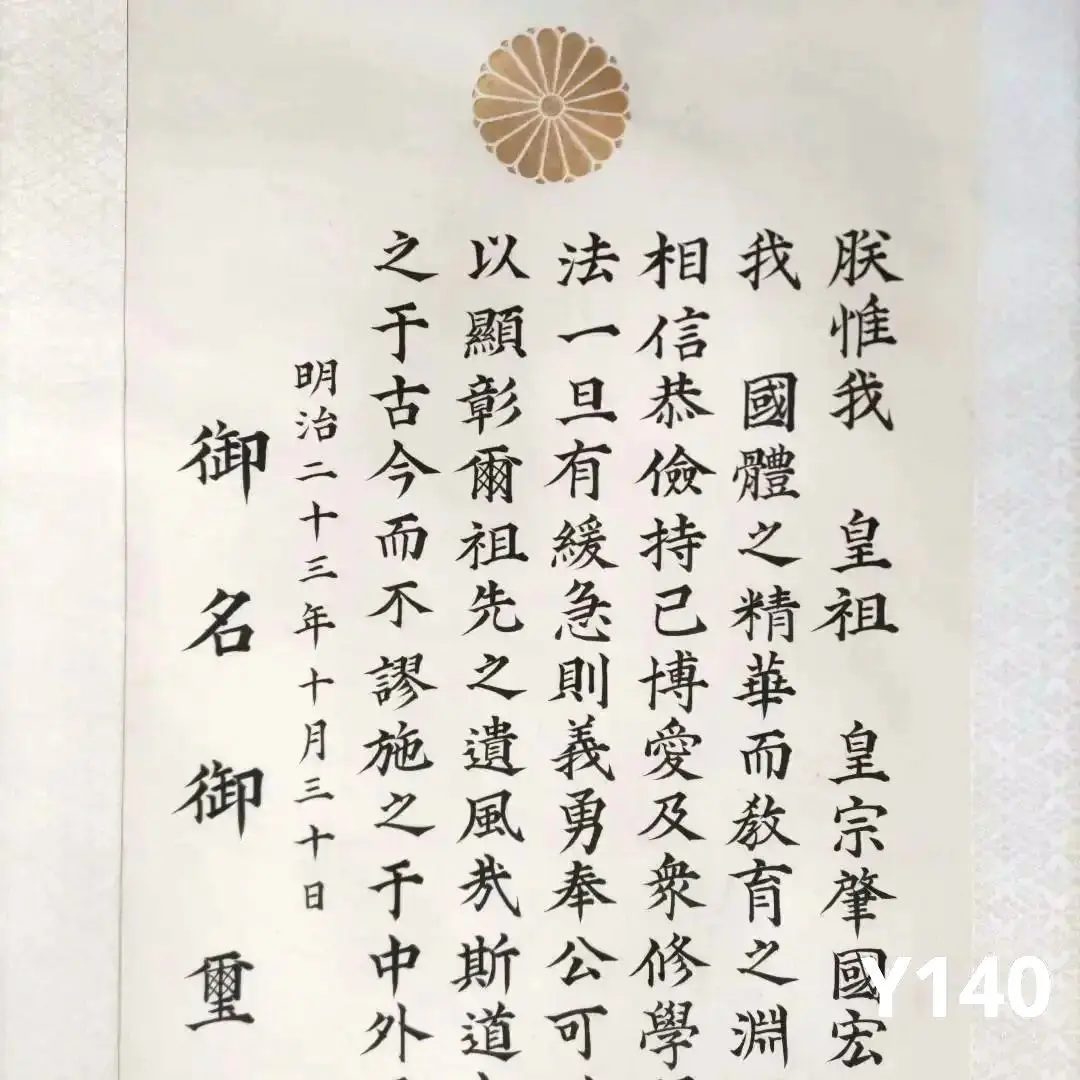 朕惟我　皇祖　皇宗肇國宏
我　國體之精華而教育之淵
相信恭儉持己博愛及衆修學
法一旦有緩急則義勇奉公可
以顯彰爾祖先之遺風矣斯道
之于古今而不謬施之于中外
明治二十三年十月三十日
御名御璽
Y140